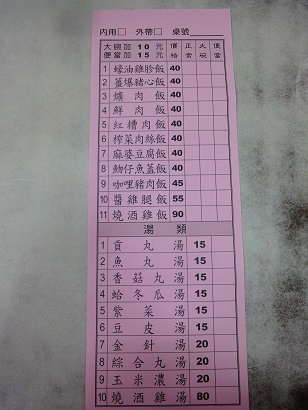 內用□ 外帶□ 桌號
大碗加 10 元
便當加 15 元
價格 正常 大碗 便當
1 蠔油雞胗飯 40
2 薑爆豬心飯 40
3 爌肉飯 40
4 鮮肉飯 40
5 紅糟肉飯 40
6 榨菜肉絲飯 40
7 麻婆豆腐飯 40
8 魩仔魚蓋飯 40
9 咖哩豬肉飯 45
10 醬雞腿飯 55
11 燒酒雞飯 90
湯類
1 貢丸湯 15
2 魚丸湯 15
3 香菇丸湯 15
4 蛤冬瓜湯 15
5 紫菜湯 15
6 豆皮湯 15
7 金針湯 20
8 綜合丸湯 20
9 玉米濃湯 20
10 燒酒雞湯 80